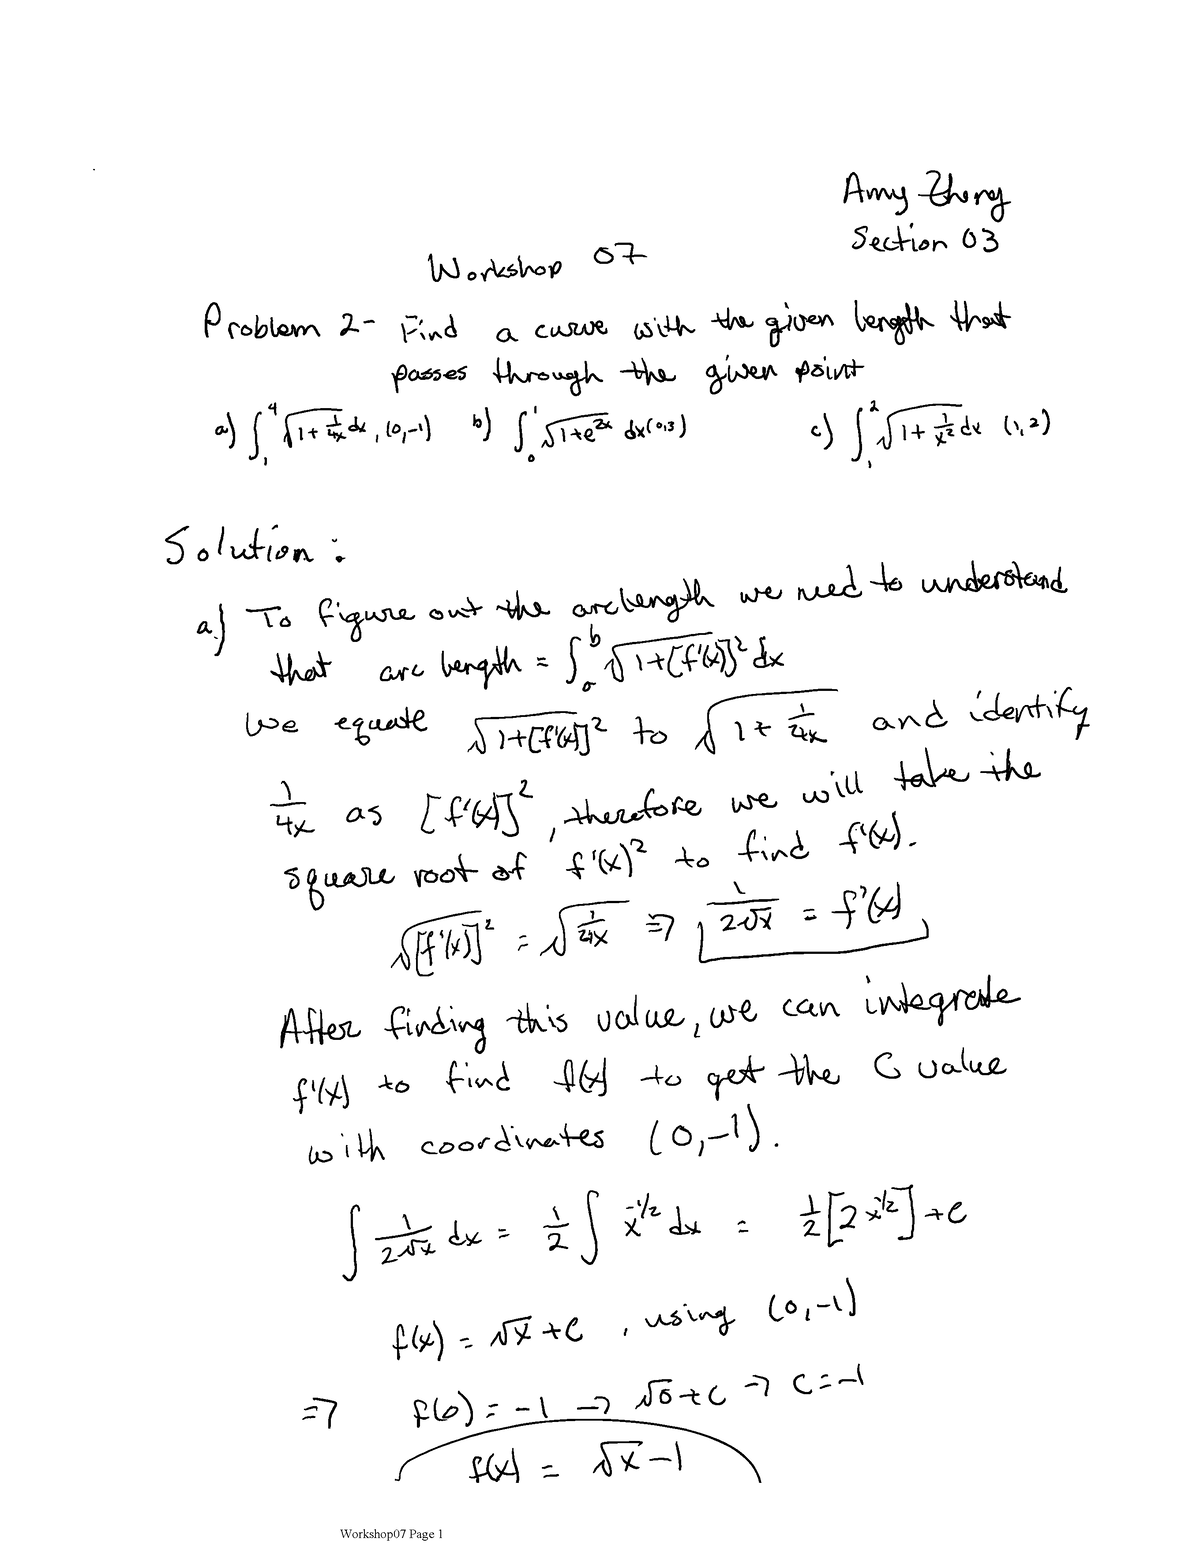 Amy Zheng
Section 03
Workshop 07
Problem 2- Find a curve with the given length that
passes through the given point
a) ∫₁⁴ √(1+ 1/4x) dx, (0,-1) b) ∫₀¹ √(1+e^2x) dx (0,3) c) ∫₁² √(1+ 1/x²) dx (1,2)
Solution:
a.) To figure out the arclength we need to understand
that arc length = ∫ₐᵇ √(1+[f'(x)]²) dx
we equate √(1+[f'(x)]²) to √(1+ 1/4x) and identify
1/4x as [f'(x)]², therefore we will take the
square root of f'(x)² to find f'(x).
√([f'(x)]²) = √(1/4x) => 1/2√x = f'(x)
After finding this value, we can integrate
f'(x) to find f(x) to get the C value
with coordinates (0,-1).
∫ 1/2√x dx = 1/2 ∫ x^-1/2 dx = 1/2 [2x^1/2] +C
f(x) = √x +C, using (0,-1)
=> f(0) = -1 -> √0 + C -> C = -1
f(x) = √x -1
Workshop07 Page 1